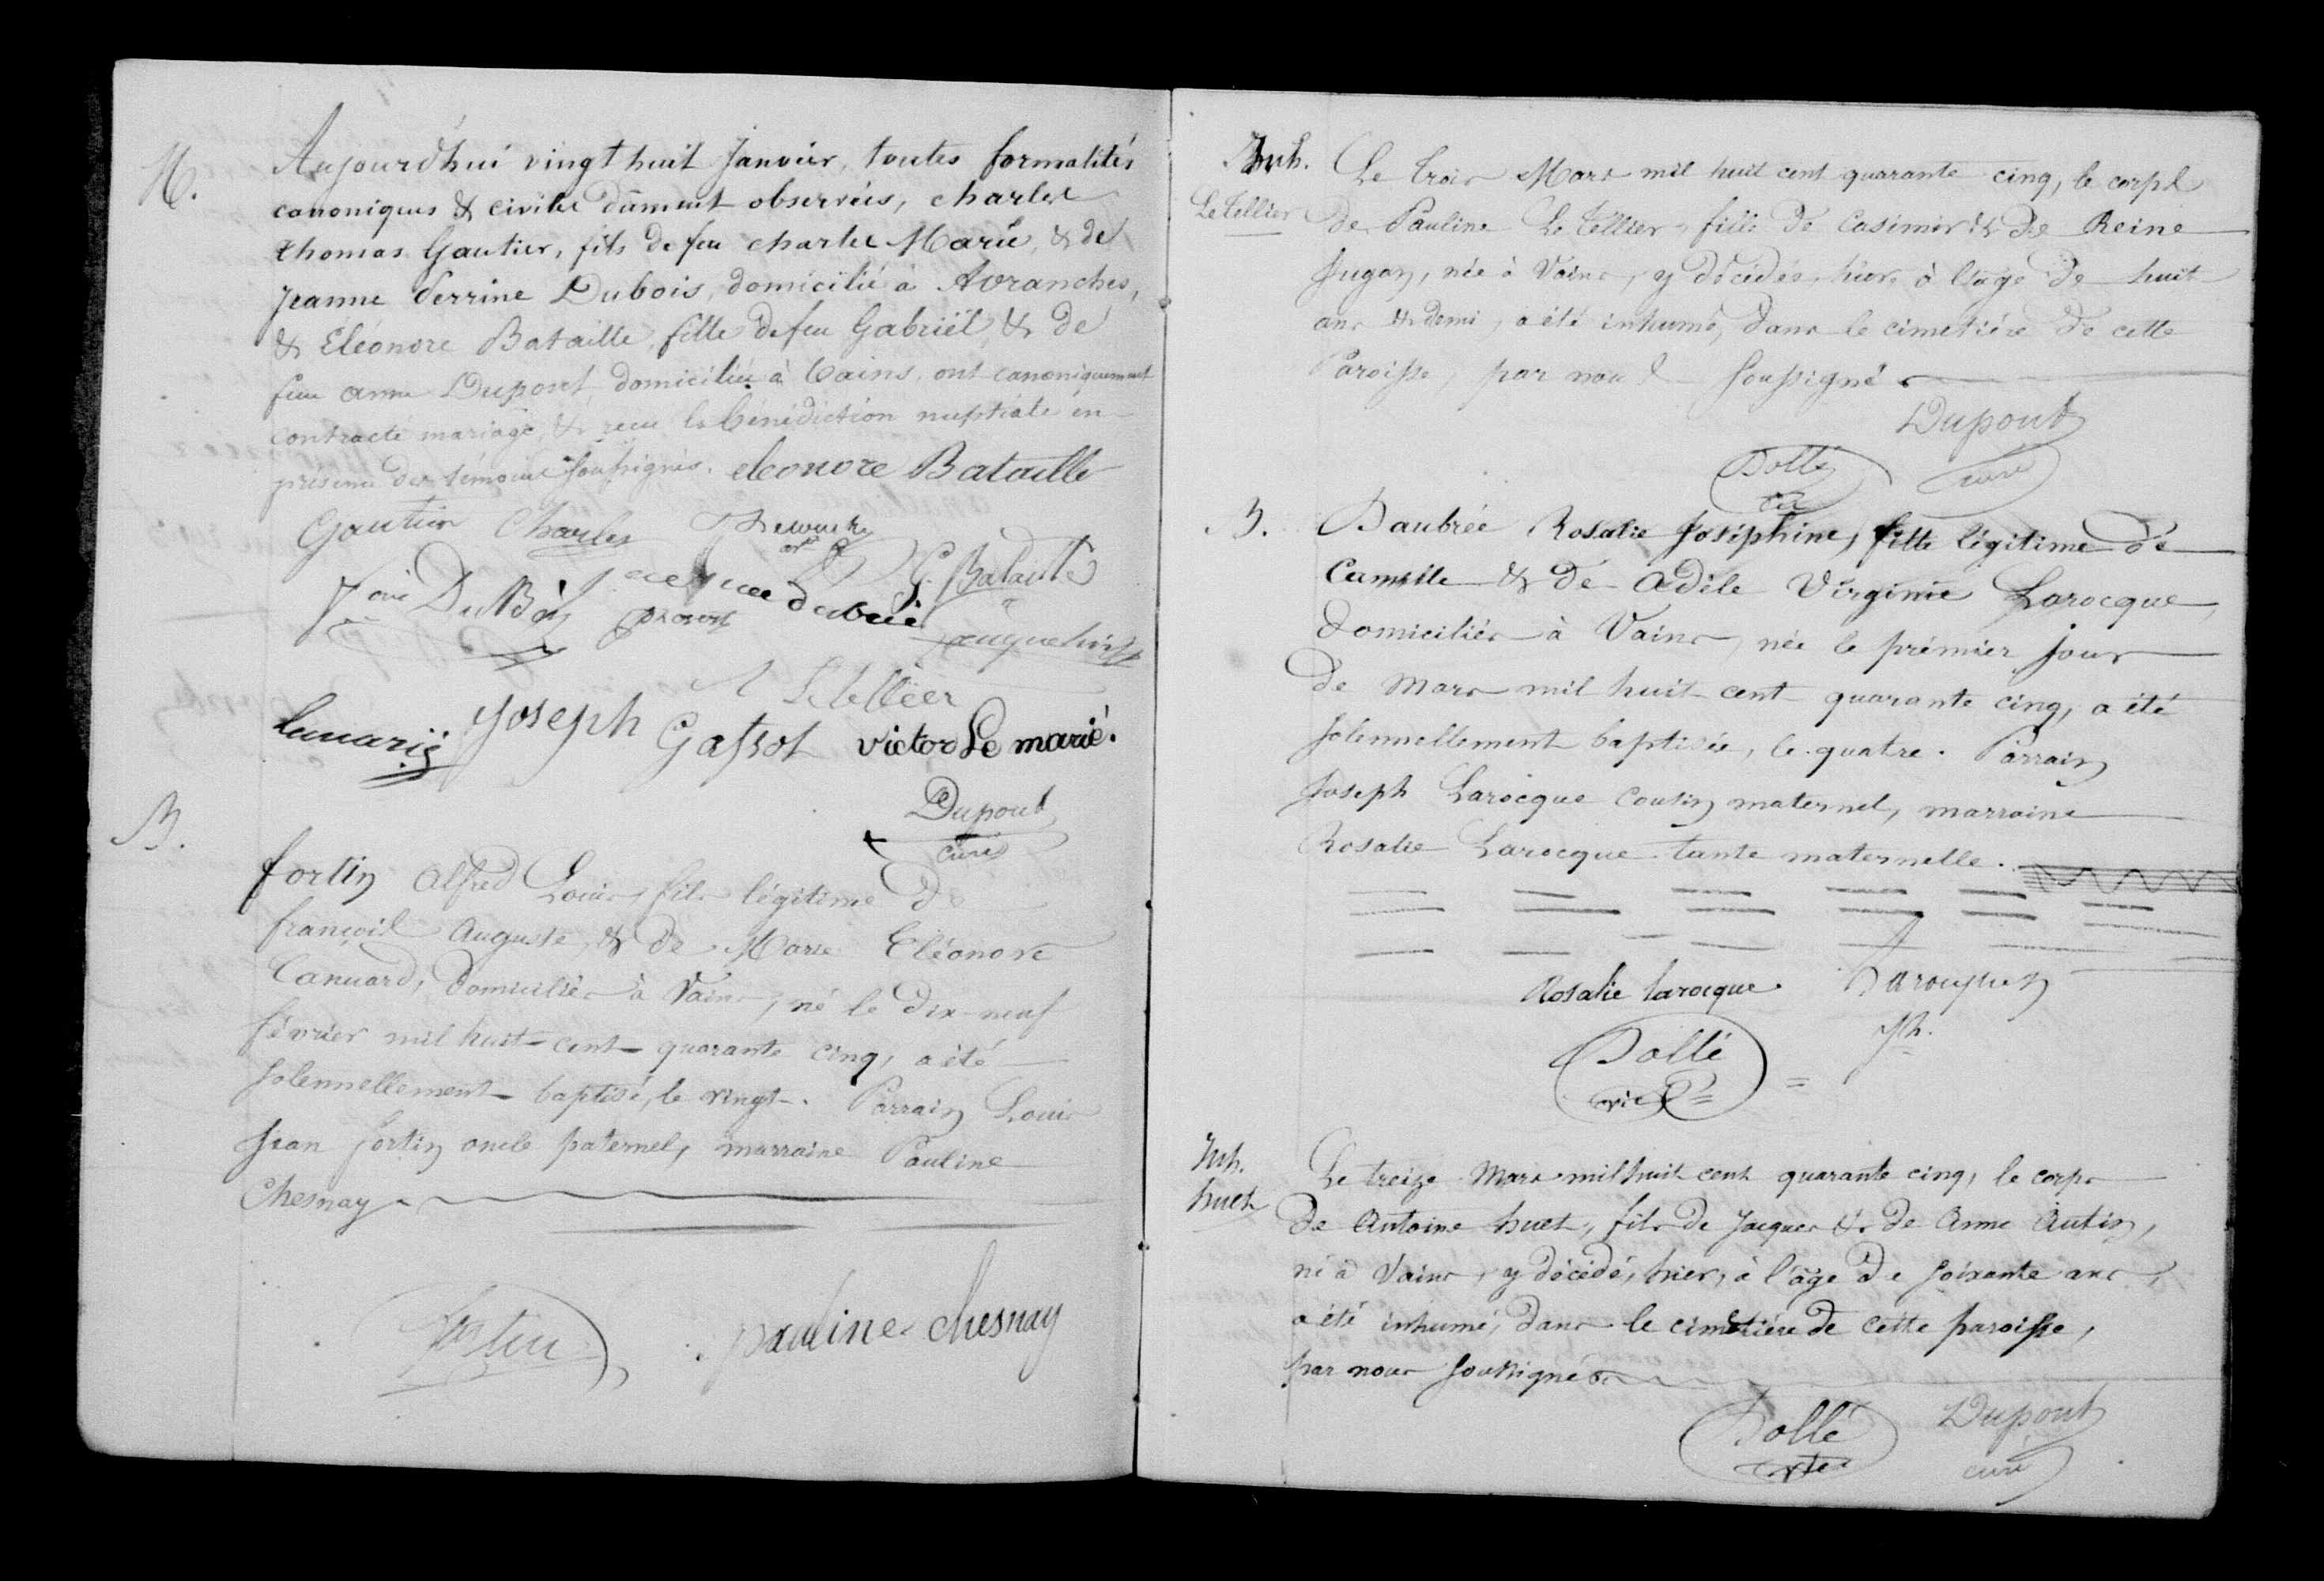 M.
Aujourd'hui vingt huit Janvier, toutes formalités
canoniques & civiles dûment observées, charles
thomas Gautier, fils de feu charles Marie, & de
Jeanne Perrine Dubois, domicilié à Avranches,
& Éléonore Bataille, fille de feu Gabriël, & de
feue anne Dupont, domiciliée à Vains, ont canoniquement
contracté mariage, & reçu la bénédiction nuptiale en
présence des témoins soussignés. eleonore Bataille
Gautier Charles
G. Bataille
DuBois provost
Letellier
Lemarié Joseph Gassot victor Le marié.
Dupont
curé
B.
fortin Alfred Louis, fils légitime de
françois Auguste, & de Marie Eléonore
Canuard, domiciliés à Vains, né le dix-neuf
février mil huit cent quarante cinq, a été
solennellement baptisé, le vingt. Parrain Louis
Jean fortin oncle paternel, marraine Pauline
Chesnay
fortin pauline chesnay
Inh.
LeTellier
Le trois Mars mil huit cent quarante cinq, le corps
de Pauline Le Tellier, fille de Casimir & de Reine
Jugan, née à Vains, y décédée, hier, à l'âge de huit
ans & demi, a été inhumé, dans le cimetière de cette
Paroisse, par nous soussigné
Dupont
curé
Dollé
B.
Daubrée Rosalie Joséphine, fille légitime de
Camille & de Adèle Virginie Larocque,
domiciliés à Vains, née le prémier jour
de Mars mil huit cent quarante cinq, a été
solennellement baptisée, le quatre. Parrain
Joseph Larocque cousin maternel, marraine
Rosalie Larocque tante maternelle.
Rosalie larocque
Jh.
Dollé
Inh.
huet
Le treize Mars mil huit cent quarante cinq, le corps
de Antoine huet, fils de Jacques & de Anne Autin,
né à Vains, y décédé, hier, à l'âge de soixante ans,
a été inhumé, dans le cimetière de cette paroisse,
par nous soussignés
Dollé
Dupont
curé